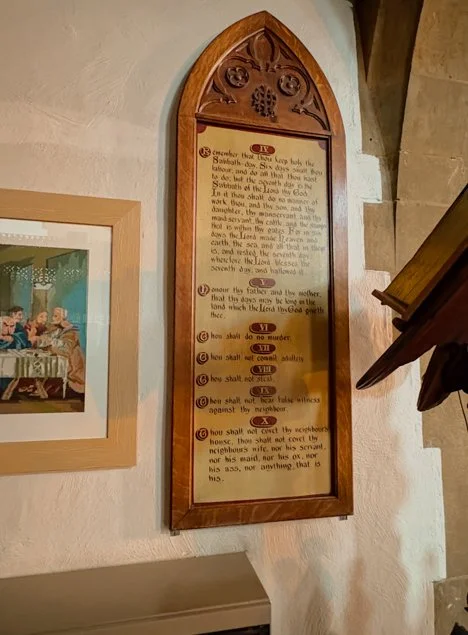 IV
Remember that thou keep holy the
Sabbath-day. Six days shalt thou
labour, and do all that thou hast
to do; but the seventh day is the
Sabbath of the Lord thy God.
In it thou shalt do no manner of
work, thou, and thy son, and thy
daughter, thy manservant, and thy
maid-servant, thy cattle, and the stranger
that is within thy gates. For in six
days the Lord made Heaven and
earth, the sea, and all that in them
is, and rested the seventh day:
wherefore the Lord blessed the
seventh day, and hallowed it.
V
Honour thy father and thy mother,
that thy days may be long in the
land which the Lord thy God giveth
thee.
VI
Thou shalt do no murder.
VII
Thou shalt not commit adultery.
VIII
Thou shalt not steal.
IX
Thou shalt not bear false witness
against thy neighbour.
X
Thou shalt not covet thy neighbour's
house, thou shalt not covet thy
neighbour's wife, nor his servant,
nor his maid, nor his ox, nor
his ass, nor anything that is
his.